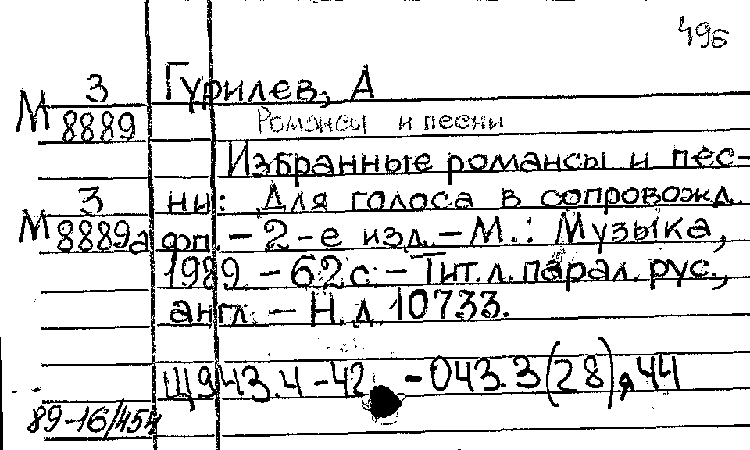 49б
З Гурилев, А
М 8889 Романсы и песни
Избранные романсы и пес-
З ни: Для голоса в сопровожд.
М 8889а фп. - 2-е изд. - М.: Музыка,
1989. - 62 с. - Тит. л. парал. рус.,
англ. - Н. д. 10733.
Щ943.4-42 -043.3(28),44
89-16/454